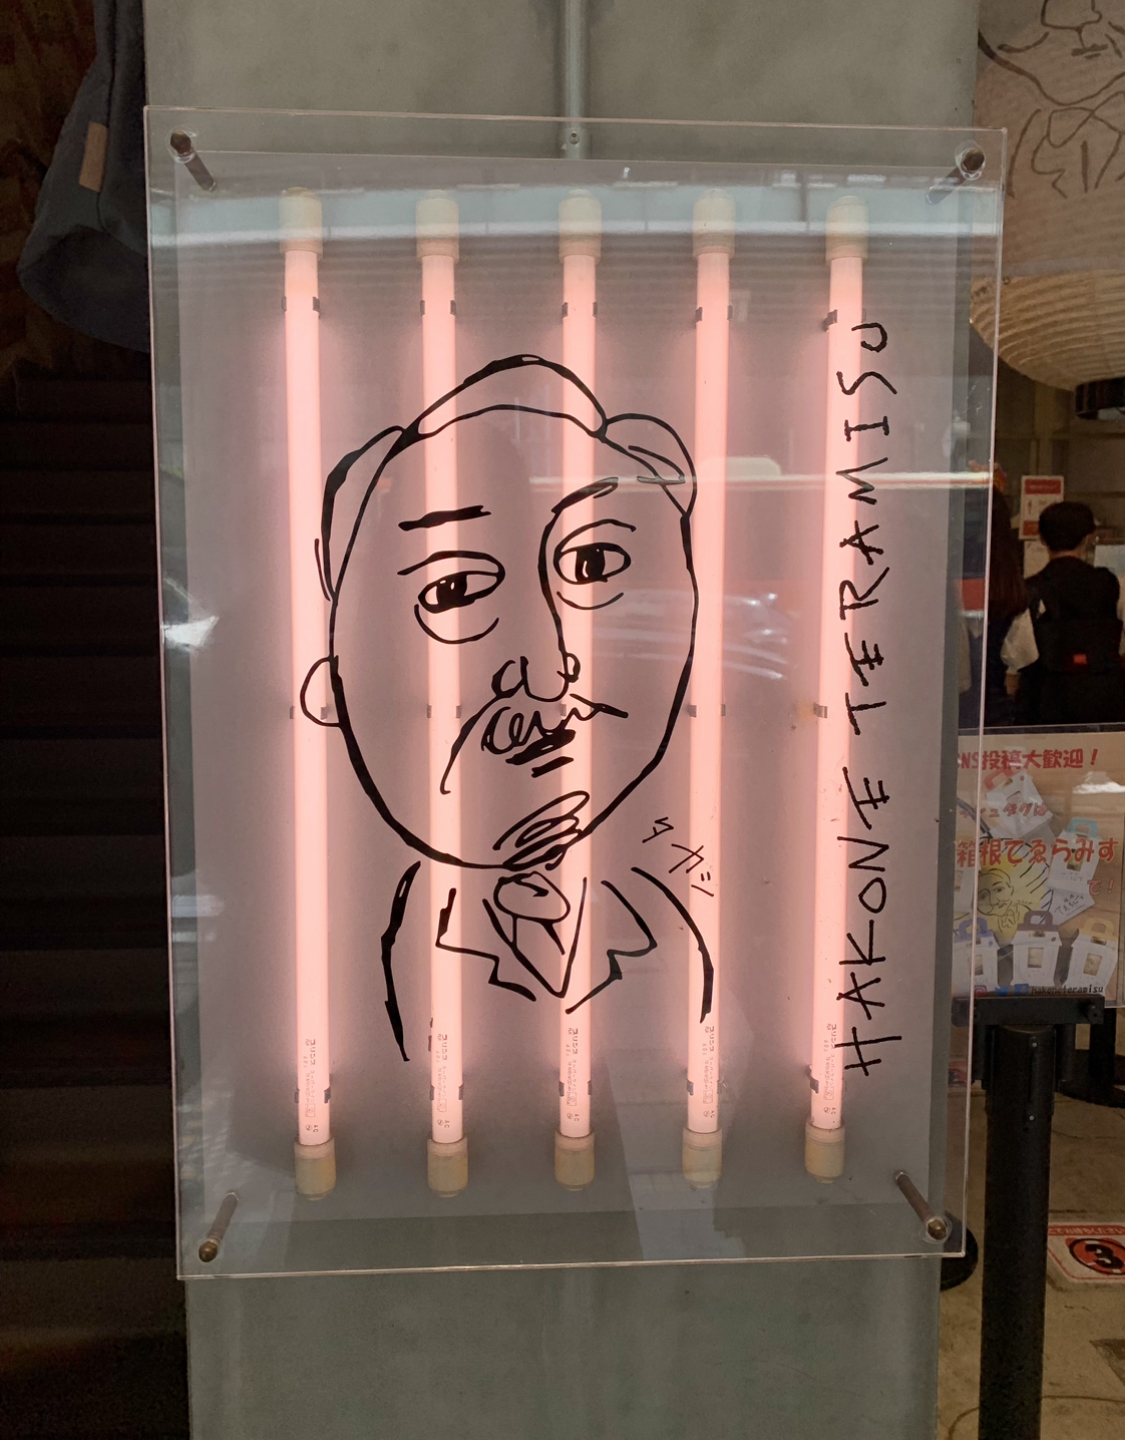 HAKONE TERAMISU
SNS投稿大歓迎！
箱根てゑらみす
で！
hakoneteramisu
3